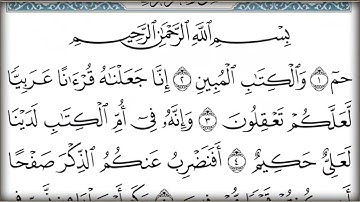 بِسْمِ اللَّهِ الرَّحْمَٰنِ الرَّحِيمِ
حمٓ ١ وَالْكِتَابِ الْمُبِينِ ٢ إِنَّا جَعَلْنَاهُ قُرْءَانًا عَرَبِيًّا
لَّعَلَّكُمْ تَعْقِلُونَ ٣ وَإِنَّهُ فِي أُمِّ الْكِتَابِ لَدَيْنَا
لَعَلِيٌّ حَكِيمٌ ٤ أَفَنَضْرِبُ عَنكُمُ الذِّكْرَ صَفْحًا